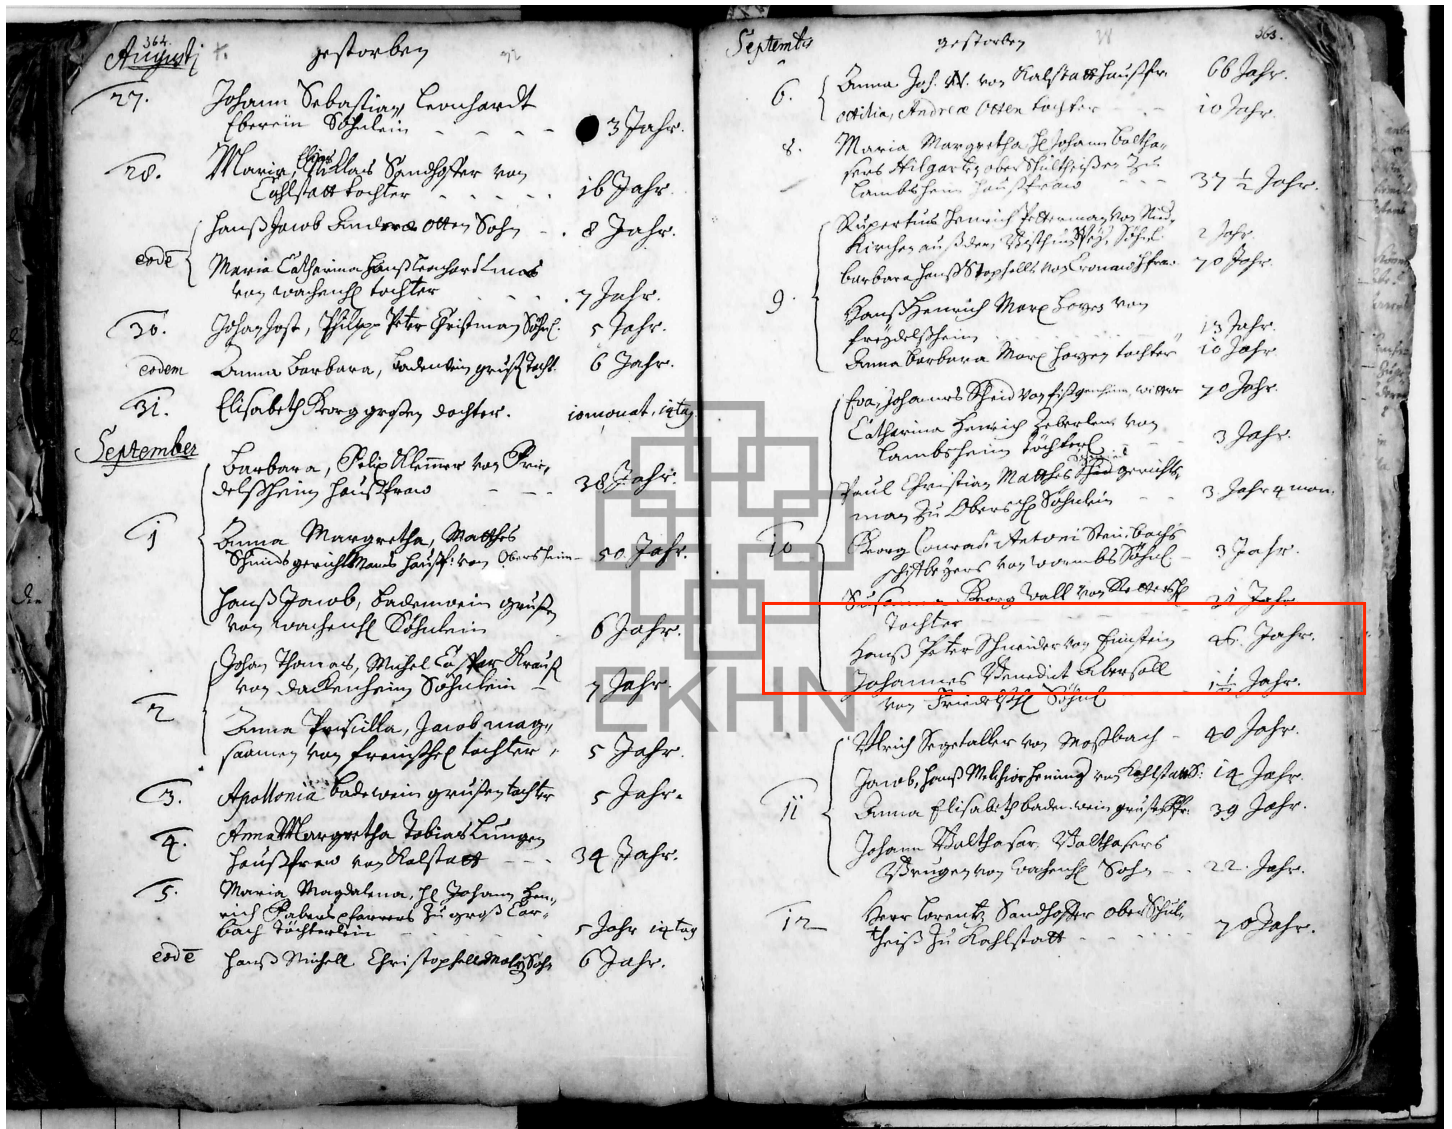 364.
Augusti
gestorben
27.
Johann Sebastian, Leonhardt
Eberein Söhnlein
3 Jahr.
28.
Maria, Niklas Sandhoffer von
Elisa
Cahlstatt tochter
16 Jahr.
Hanß Jacob Andreæ Otten Sohn
8 Jahr.
eodē
Maria Catharina Hanß Leonhard
von tochter
7 Jahr.
30.
Johan Jost, Philipp Peter Christman Söhnl.
5 Jahr.
eodem
Anna Barbara, Badenwein grußs Tocht.
6 Jahr.
31.
Elisabeth Georg großen dochter.
10 monat, 14 tag
September
Barbara, Felix Klemmer von
delßheim haußfraw
38 Jahr.
1
Anna Margretha, Matthes
Schmids gerichts Mans haußf: von Obersheim
50 Jahr.
Hanß Jacob, Badenwein grußen
von Söhnlein
6 Jahr.
Johan Thomas, Michel Caspar Krauß
von Dackenheim Söhnlein
7 Jahr.
2
Anna Priscilla, Jacob mag-
saamen von tochter
5 Jahr.
3.
Apollonia Badewein grußen tochter
5 Jahr.
4.
Anna Margretha Tobias Lungen
haußfraw von Kalstatt
34 Jahr.
5.
Maria Magdalena, H. Johann Hen-
rich Fabers pfarrers zu groß Car-
bach Töchterlein
5 Jahr 14 tag
eodē
Hanß Michell Christophell Sohn
6 Jahr.
Septembr
gestorben
365.
6.
Anna Joh. N. von Kalstatt Haußfr.
66 Jahr.
Ottilia, Andreæ Otten tochter
10 Jahr.
8.
Maria Margretha H. Johann Baltha-
sars Hilgart ober Schultheißen zu
Lambsheim haußfraw
37 ½ Jahr.
Rupertus Henrich Petterman von
Kirchen auß dem Söhnl.
2 Jahr.
Barbara Hanß Stophells von
70 Jahr.
9.
Hanß Henrich Marx von
freydelßheim
13 Jahr.
Anna Barbara Marx tochter
10 Jahr.
Eva, Johannes Scheid von Eißgenheim, witwe
70 Jahr.
Catharina Henrich Heberlens von
Lambsheim töchterl.
3 Jahr.
Paul Christian Matthes Schmid gerichts
man zu Obersh. Söhnlein
3 Jahr 4 mon.
10
Georg Conrad, Antoni Steinbachs
von wormbs Söhnl.
3 Jahr.
Susanna Georg Wall von
21 Jahr
Tochter
Hanß Peter Schneider von Einstein
26. Jahr.
Johannes Benedict Ebersoll
1 ½ Jahr.
von Friedelßh. Söhnl.
Ulrich Segetaller von Moßbach
40 Jahr.
Jacob, Hanß Melchior Hening von Kahlstatt S:
14 Jahr.
11
Anna Elisabeth Badenwein grußs fr.
39 Jahr.
Johann Balthasar, Balthasars
von Sohn
22. Jahr.
12
Herr Lorentz Sandhoffer ober Schul-
theiß zu Kahlstatt
70 Jahr.
EKHN